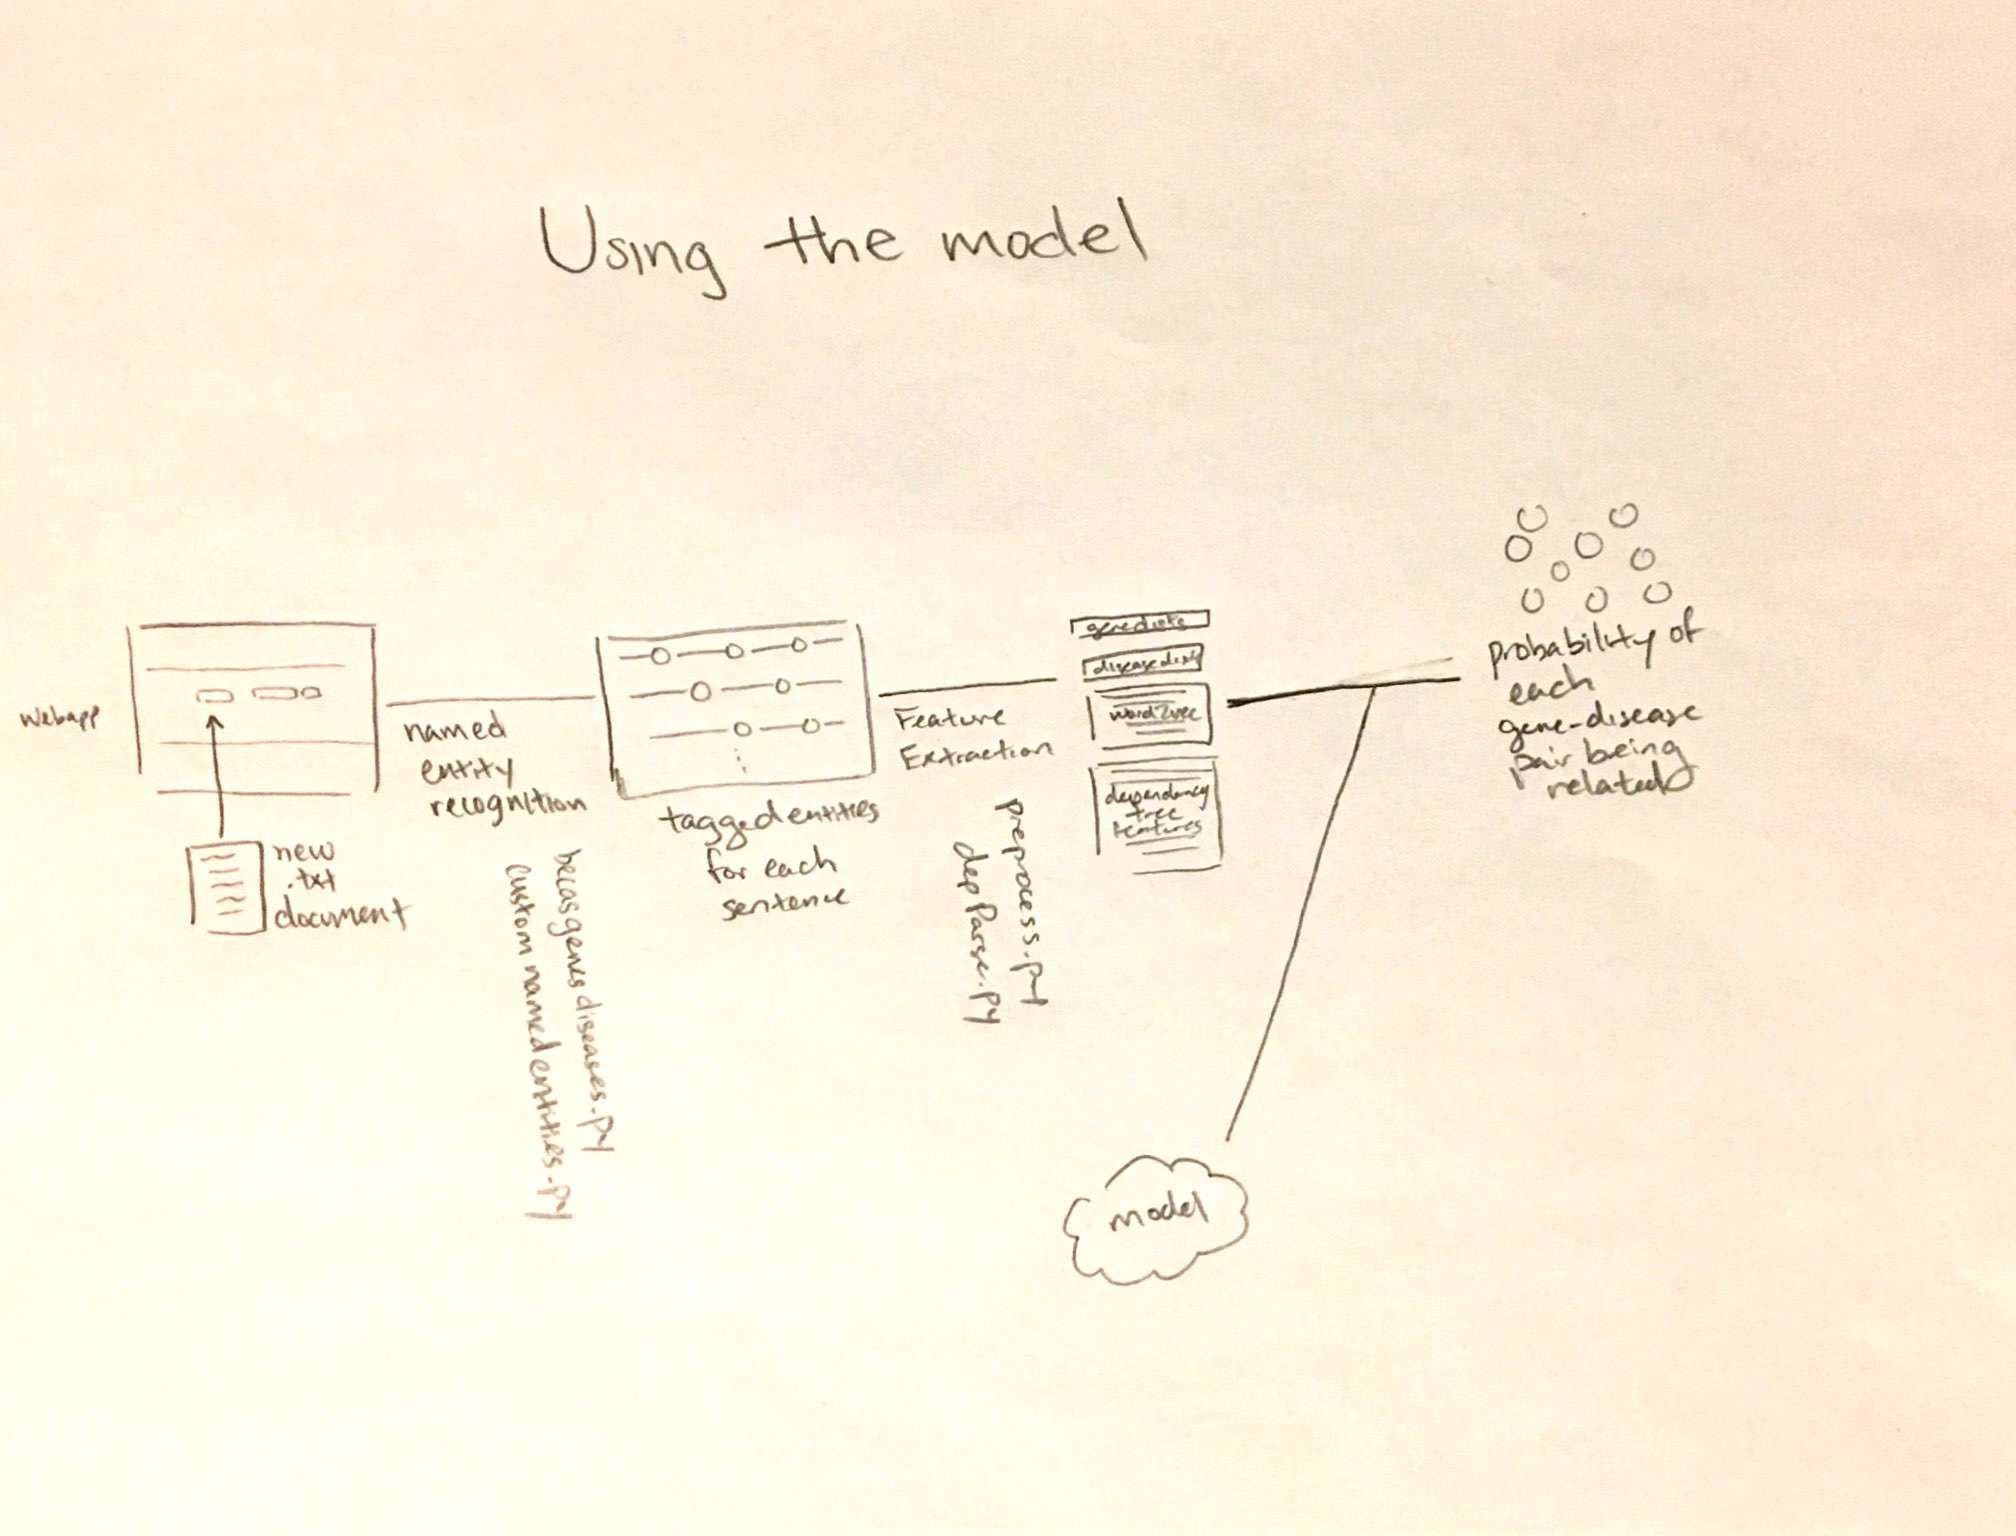 Using the model
Webapp
new
.txt
document
named
entity
recognition
becasgenesdiseases.py
customnamedentities.py
tagged entities
for each
sentence
Feature
Extraction
preprocess.py
depParse.py
word2vec
dependency
tree
features
model
probability of
each
gene-disease
pair being
related